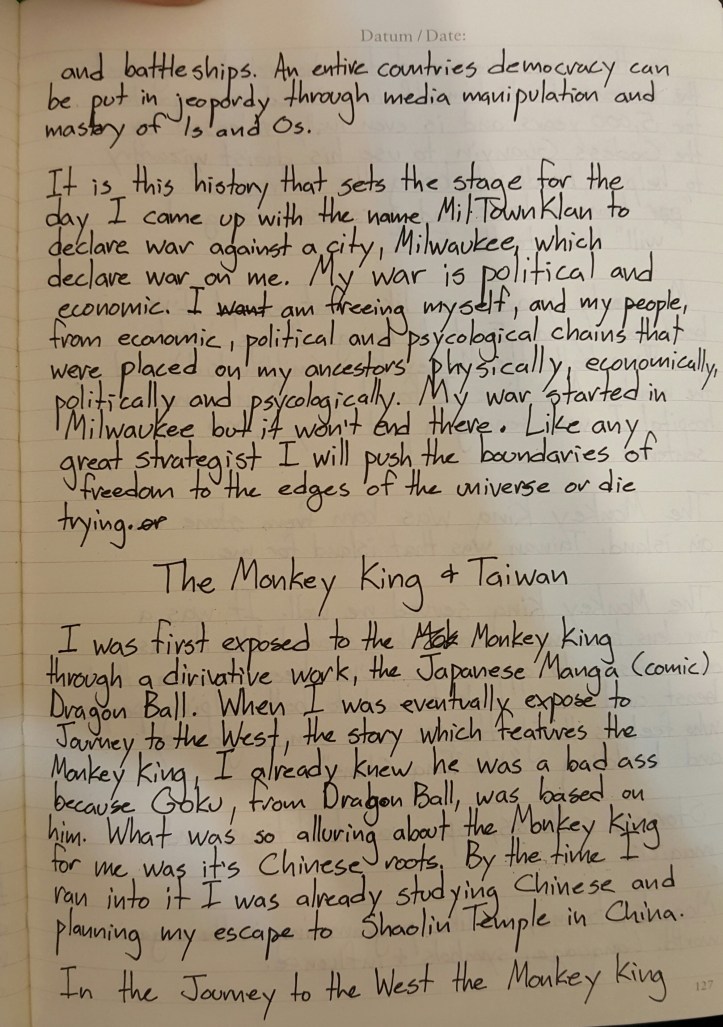 Datum / Date:
and battleships. An entire countries democracy can
be put in jeopordy through media manipulation and
mastery of 1s and Os.
It is this history that sets the stage for the
day I came up with the name MilTownKlan to
declare war against a city, Milwaukee, which
declare war on me. My war is political and
economic. I want am freeing myself, and my people,
from economic, political and psycological chains that
were placed on my ancestors physically, economically,
politically and psycologically. My war started in
Milwaukee but it won't end there. Like any
great strategist I will push the boundaries of
freedom to the edges of the universe or die
trying. or
The Monkey King & Taiwan
I was first exposed to the Mok Monkey King
through a dirivative work, the Japanese Manga (comic)
Dragon Ball. When I was eventually expose to
Journey to the West, the story which features the
Monkey King, I already knew he was a bad ass
because Goku, from Dragon Ball, was based on
him. What was so alluring about the Monkey King
for me was it's Chinese roots. By the time I
ran into it I was already studying Chinese and
planning my escape to Shaolin Temple in China.
In the Journey to the West the Monkey King
127